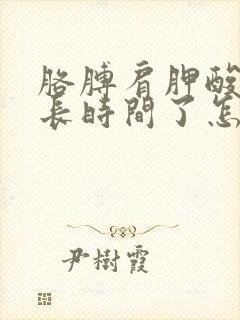 胳膊肩胛酸
長時間了怎
尹樹霞